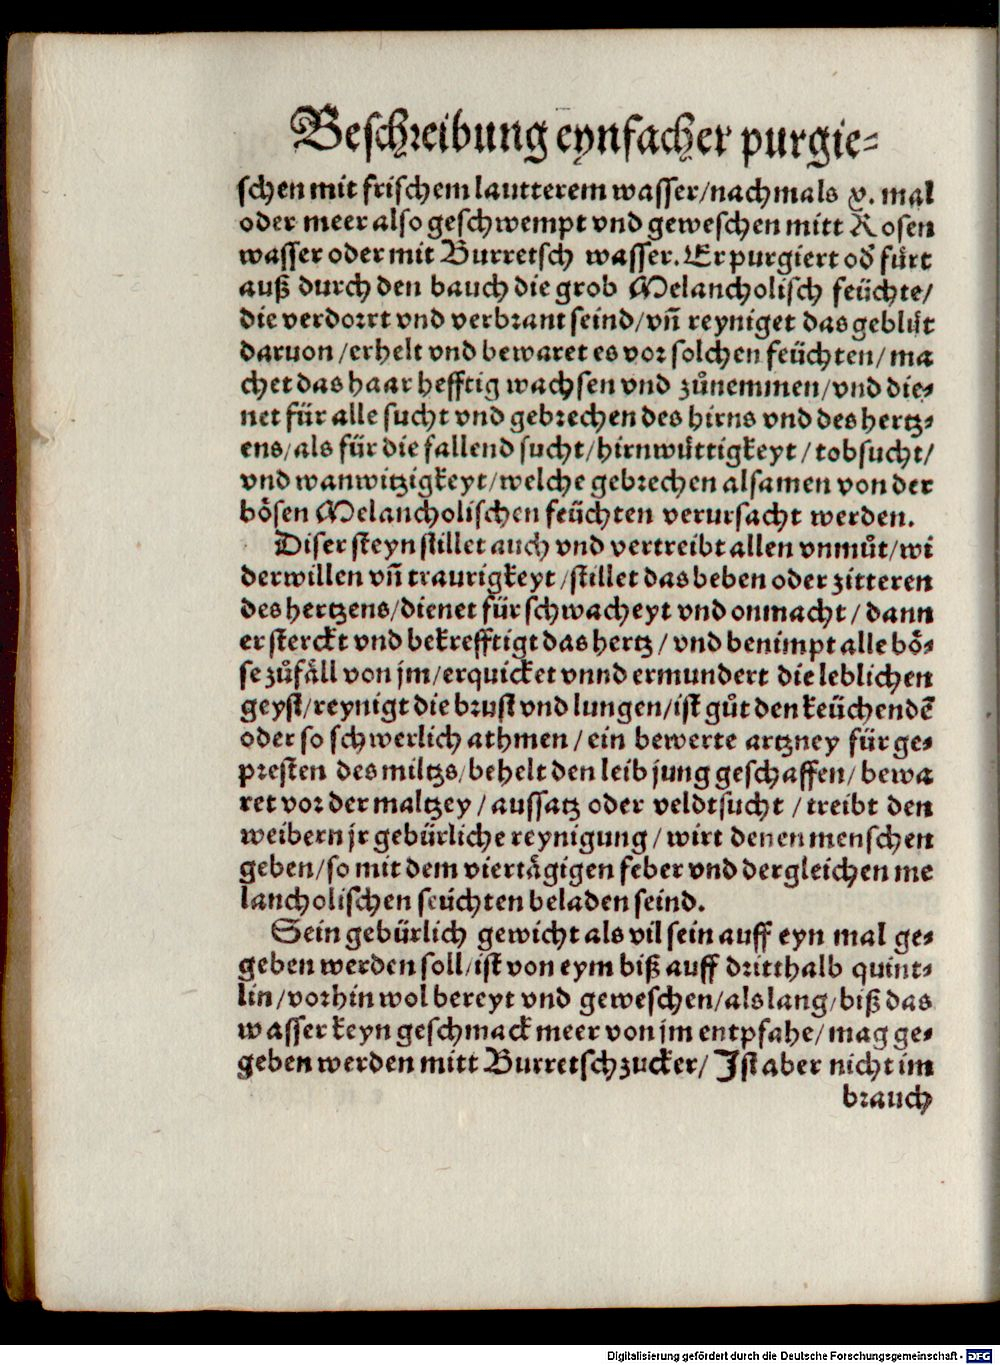 Beschreibung eynfacher purgie⸗
schen mit frischem lautterem wasser/nachmals x. mal
oder meer also geschwempt vnd geweschen mitt Rosen
wasser oder mit Burretsch wasser. Er purgiert od̕ fürt
auß durch den bauch die grob Melancholisch feüchte/
die verdorrt vnd verbrant seind/vn̄ reyniget das geblüt
daruon/erhelt vnd bewaret es vor solchen feüchten/ma
chet das haar hefftig wachsen vnd zůnemmen/vnd die⸗
net für alle sucht vnd gebrechen des hirns vnd des hertz⸗
ens/als für die fallend sucht/hirnwüttigkeyt/tobsucht/
vnd wanwitzigkeyt/welche gebrechen alsamen von der
bösen Melancholischen feüchten verursacht werden.
Diser steyn stillet auch vnd vertreibt allen vnmůt/wi
derwillen vn̄ traurigkeyt/stillet das beben oder zitteren
des hertzens/dienet für schwacheyt vnd onmacht/dann
er sterckt vnd bekrefftigt das hertz/vnd benimpt alle bö⸗
se zůfäll von jm/erquicket vnnd ermundert die leblichen
geyst/reynigt die brust vnd lungen/ist gůt den keüchendē
oder so schwerlich athmen/ein bewerte artzney für ge⸗
presten des miltzs/behelt den leib jung geschaffen/bewa
ret vor der maltzey/aussatz oder veldtsucht/treibt den
weibern jr gebürliche reynigung/wirt denen menschen
geben/so mit dem viertägigen feber vnd dergleichen me
lancholischen seüchten beladen seind.
Sein gebürlich gewicht als vil sein auff eyn mal ge⸗
geben werden soll/ist von eym biß auff dritthalb quint⸗
lin/vorhin wol bereyt vnd geweschen/als lang/biß das
wasser keyn geschmack meer von jm entpfahe/mag ge⸗
geben werden mitt Burretschzucker/Ist aber nicht im
brauch
Digitalisierung gefördert durch die Deutsche Forschungsgemeinschaft - DFG